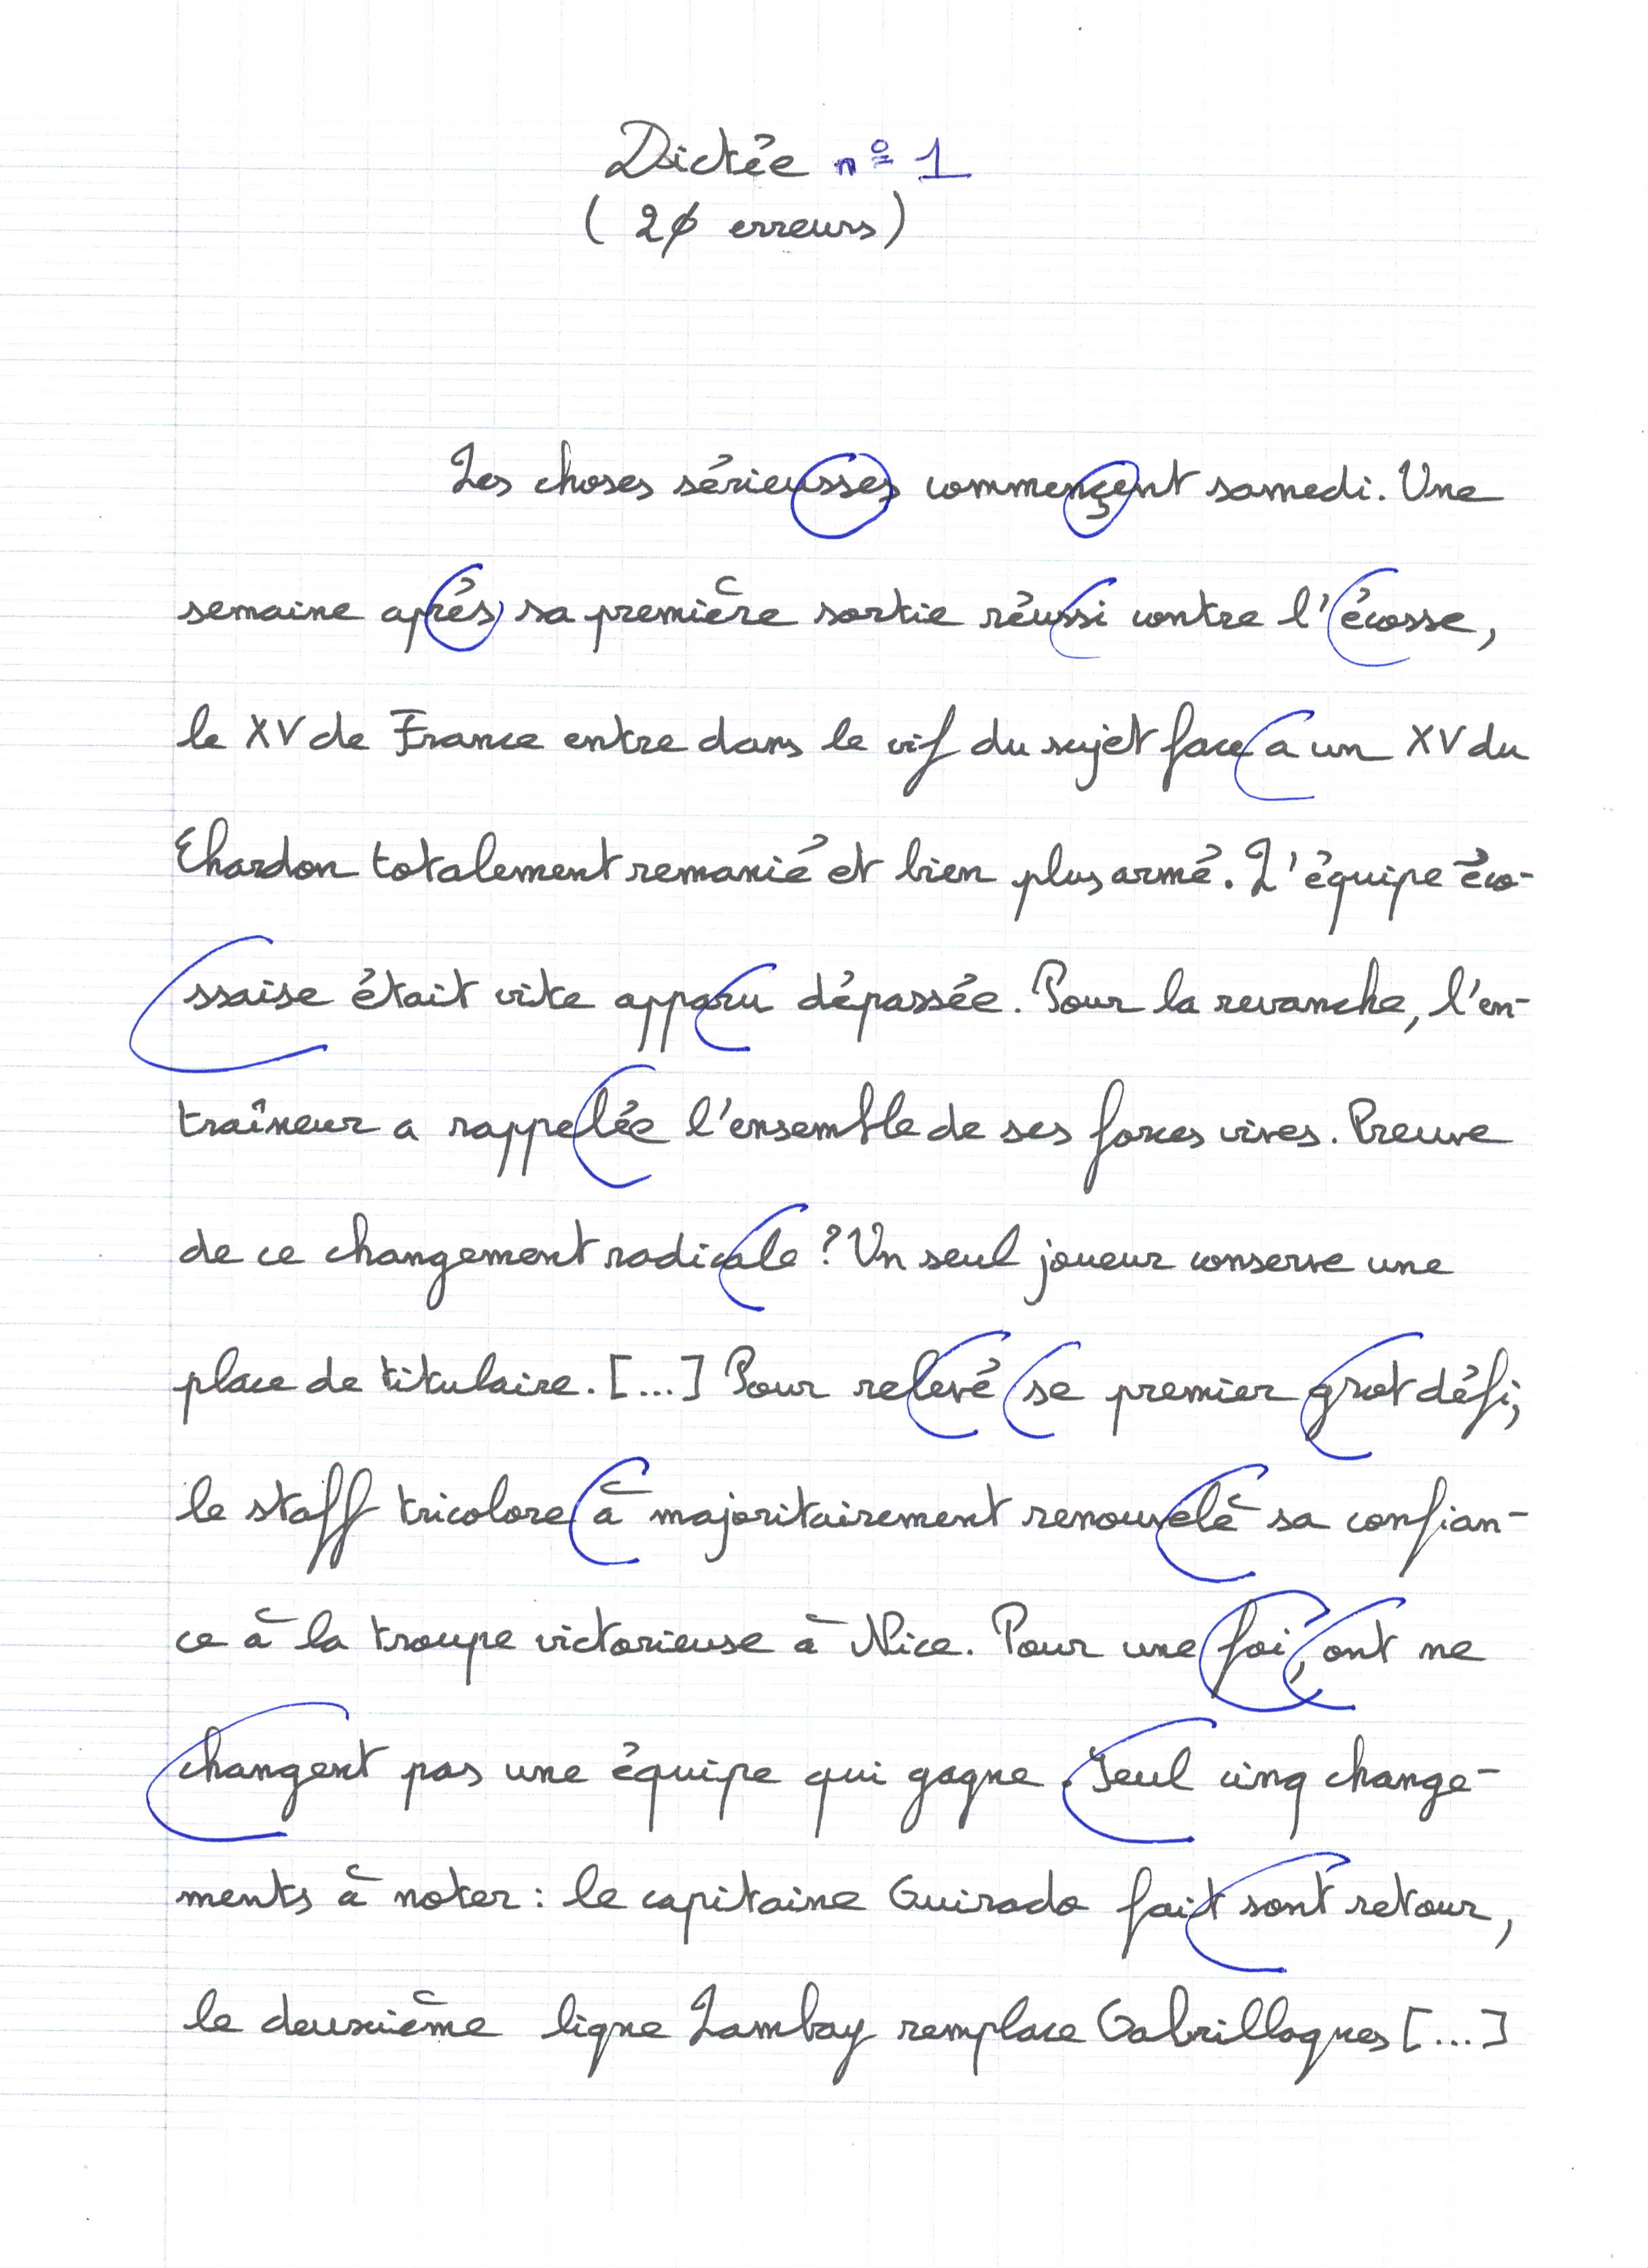 Dictée n° 1
(20 erreurs)
Les choses sérieusses commençent samedi. Une
semaine aprés sa première sortie réussi contre l'écosse,
le XV de France entre dans le vif du sujet face a un XV du
Chardon totalement remanié et bien plus armé. L'équipe éco-
ssaise était vite apparu dépassée. Pour la revanche, l'en-
traîneur a rappelée l'ensemble de ses forces vives. Preuve
de ce changement radicale ? Un seul joueur conserve une
place de titulaire. [...] Pour relevé se premier grot défi,
le staff tricolore à majoritairement renouvelè sa confian-
ce à la troupe victorieuse à Nice. Pour une foi, ont ne
changent pas une équipe qui gagne. Seul cinq change-
ments à noter : le capitaine Guirado fait sont retour,
le deuxième ligne Lambay remplace Gabrillagues [...]